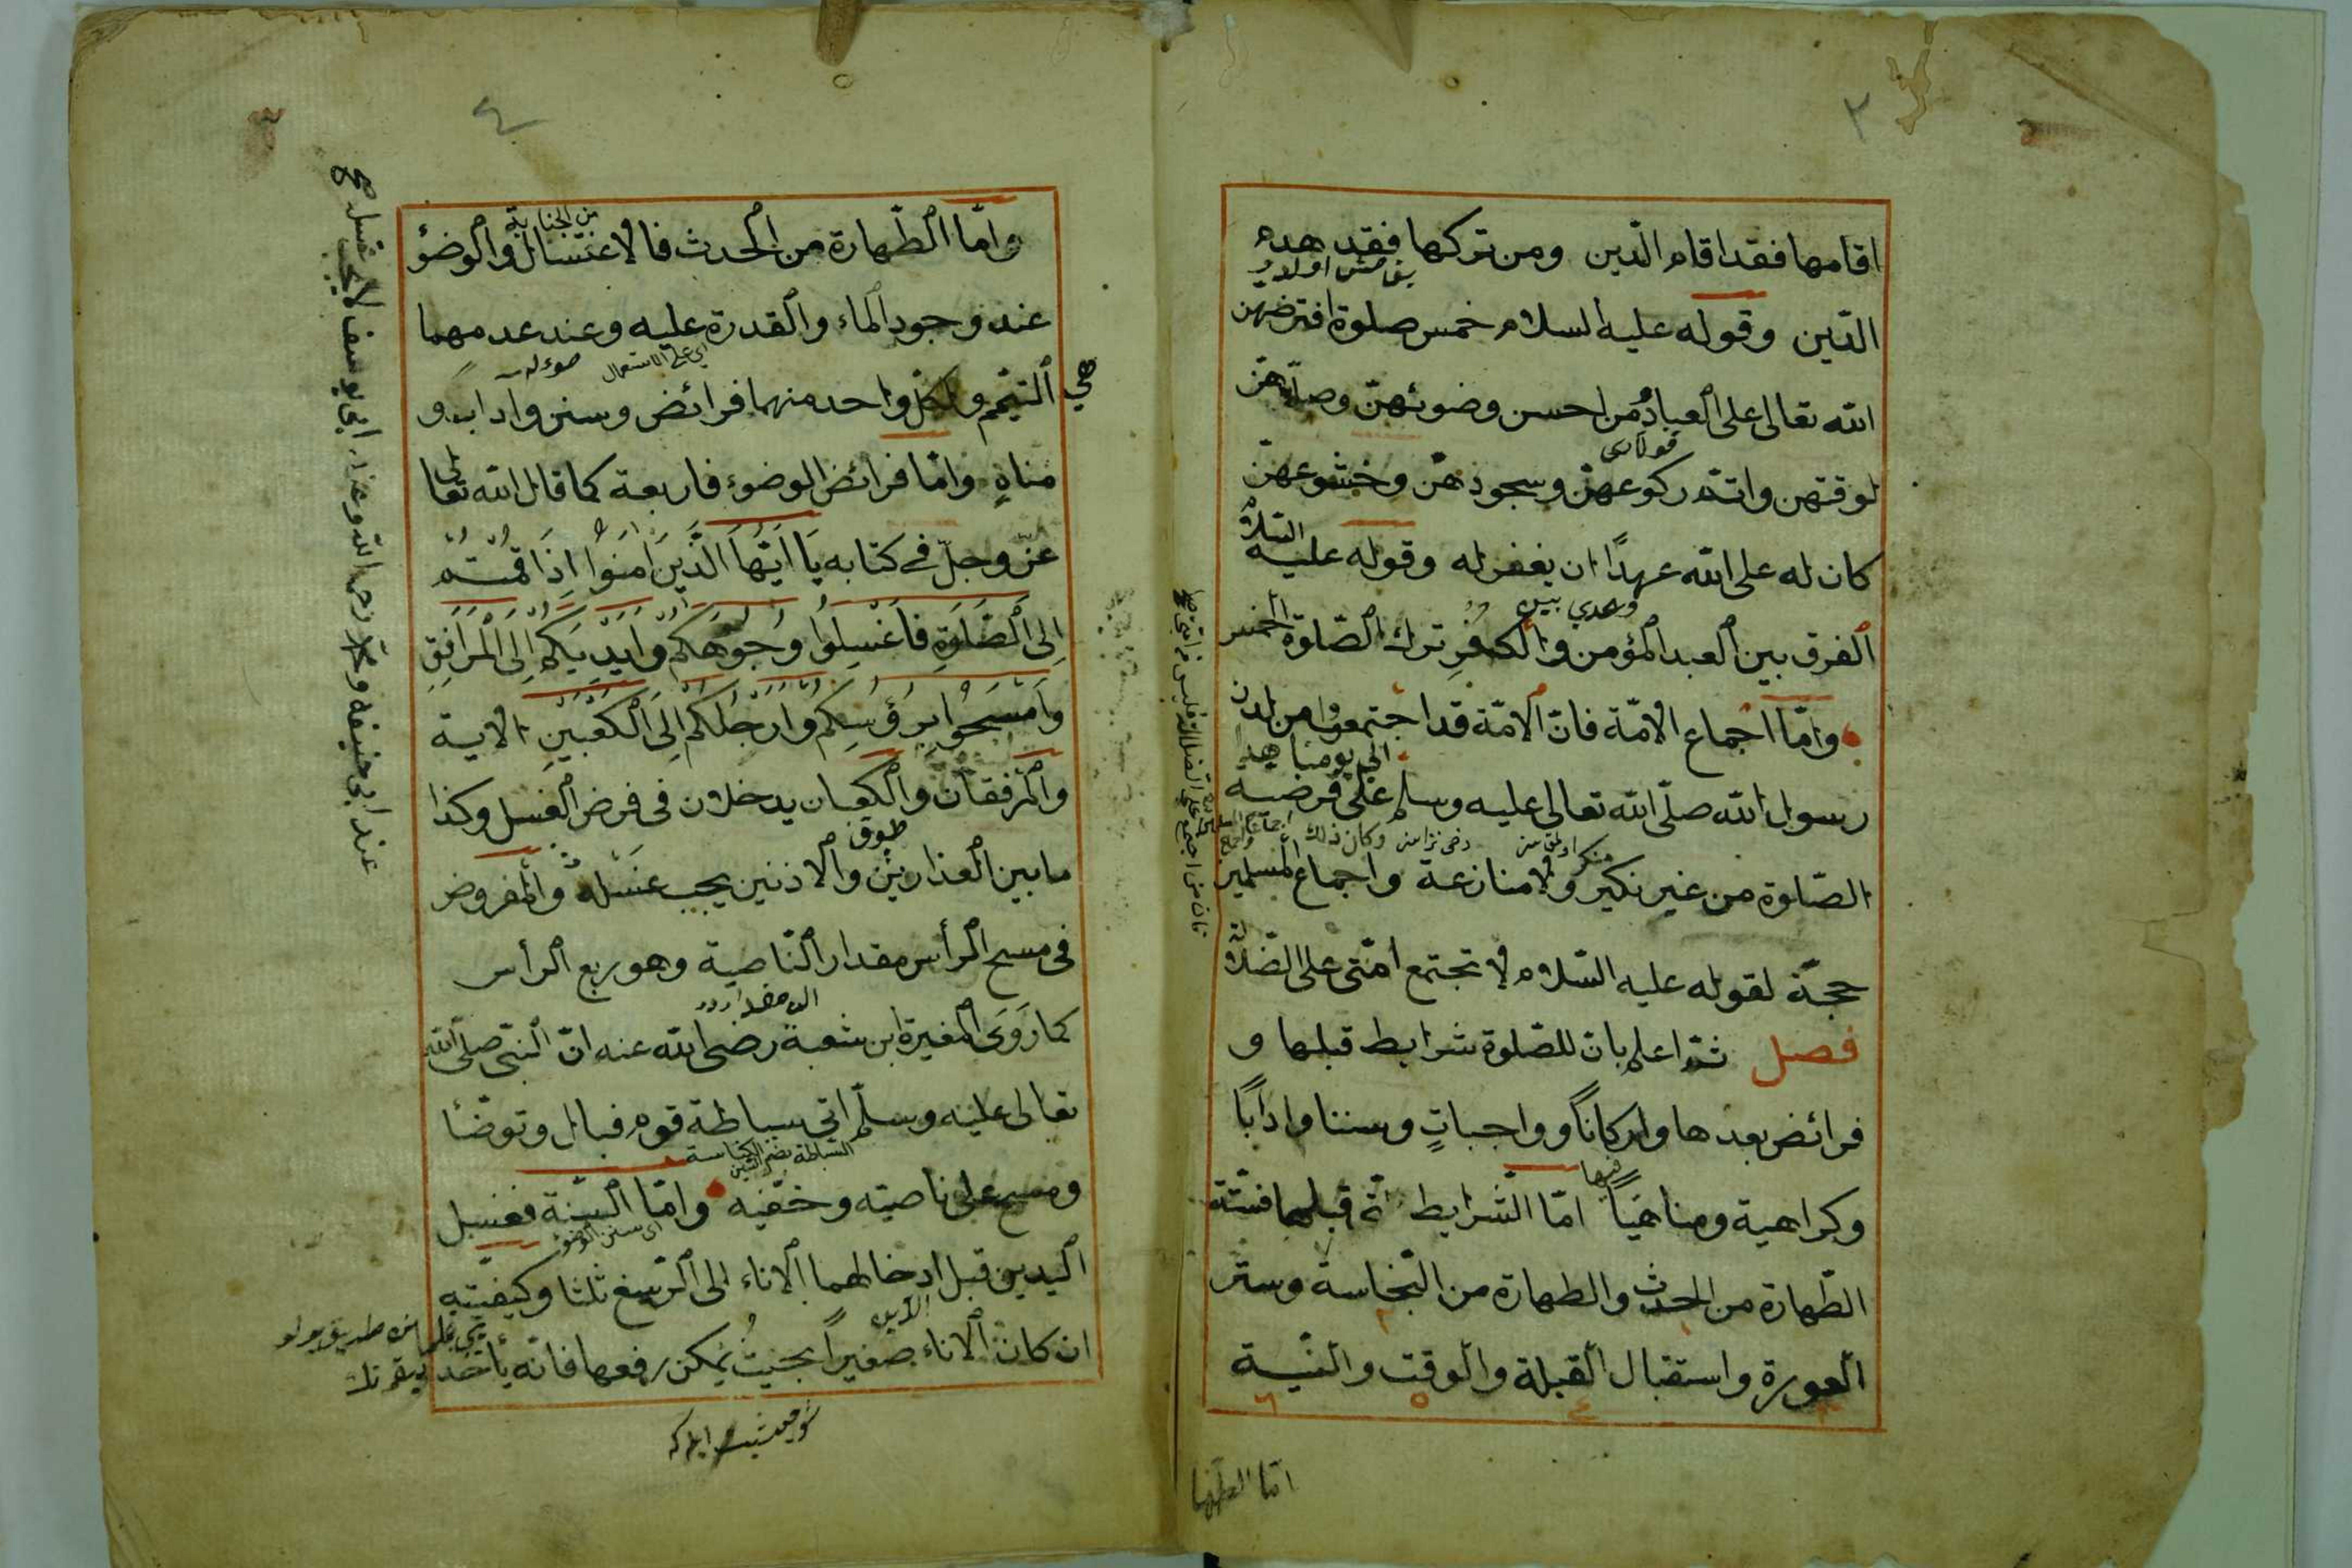 ٣
اقامها فقد اقام الدّين ومن تركها فقد هدم
الدّين وقوله عليه السلام خمس صلوة افترضهن
الله تعالى على العباد من احسن وضوئهنّ وصلّاهنّ
لوقتهن واتمّ ركوعهنّ وسجودهنّ وخشوعهنّ
كان له على الله عهدًا ان يغفر له وقوله عليه السّلام
الفرق بين العبد المؤمن والكفر ترك الصّلوة الخمس
وامّا اجماع الامّة فانّ الامّة قد اجتمعوا من لدن
الى يومنا هذا
رسول الله صلّى الله تعالى عليه وسلّم على فرضية
الصّلوة من غير نكير ولا منازعة واجماع المسلمين
حجّة لقوله عليه السّلام لا تجتمع امّتى على الضّلالة
فصل ثمّ اعلم بانّ للصّلوة شرايط قبلها و
فرائض بعدها واركاناً وواجباتٍ وسننا وادابًا
فيها
وكراهية ومناهيًا امّا الشّرايط قبلها فستّة
الطّهارة من الحدث والطهارة من النّجاسة وستر
العورة واستقبال القبلة والوقت والنّيّة
٦ ٥ ٤
امّا الطّها
٤
من الجنابة
وامّا الطّهارة من الحدث فالاغتسال والوضؤ
عند وجود الماء والقدرة عليه وعند عدمهما
اى على الاستعمال
هي
التّيمّم ولكلّ واحد منهما فرائض وسنن وآداب و
مناهٍ وامّا فرائض الوضوء فاربعة كما قال الله تعالى
عزّ وجلّ في كتابه يَا اَيُّهَا الَّذِينَ اٰمَنُوا اِذَا قُمْتُمْ
اِلَى الصَّلٰوةِ فَاغْسِلُوا وُجُوهَكُمْ وَاَيْدِيَكُمْ اِلَى الْمَرَافِقِ
وَامْسَحُوا بِرُؤُسِكُمْ وَاَرْجُلَكُمْ اِلَى الْكَعْبَيْنِ الاية
والمرفقان والكعبان يدخلان فى فرض الغسل وكذا
ما بين العذارين والاذنين يجب غسله والمفروض
فى مسح الرأس مقدار النّاصية وهو ربع الرأس
كما روى المغيرة ابن شعبة رضى الله عنه انّ النّبىّ صلّى الله
تعالى عليه وسلّم اتى سباطة قوم فبال وتوضّأ
السّباطة بضم السّين الكناسة
ومسح على ناصيته وخفّيه وامّا السّنة فغسل
اى سنن الوضوء
اليدين قبل ادخالهما الاناء الى الرّسغ ثلثا وكيفيّته
ان كان الاناء صغيراً بحيث يمكن رفعها فانّه يأخذ
عند ابى حنيفه ومحمّد رحمه الله وعند ابى يوسف لا يجب غسله